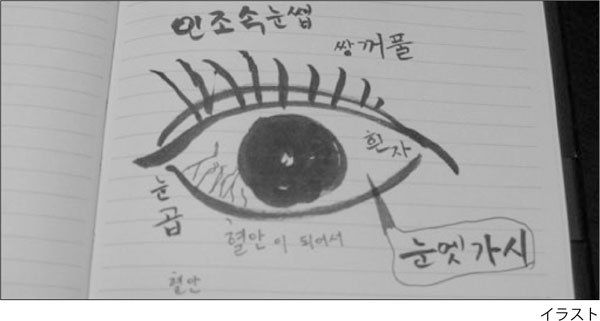 인조속눈썹
쌍꺼풀
흰자
눈곱
혈안이 되어서
눈엣가시
혈안
イラスト